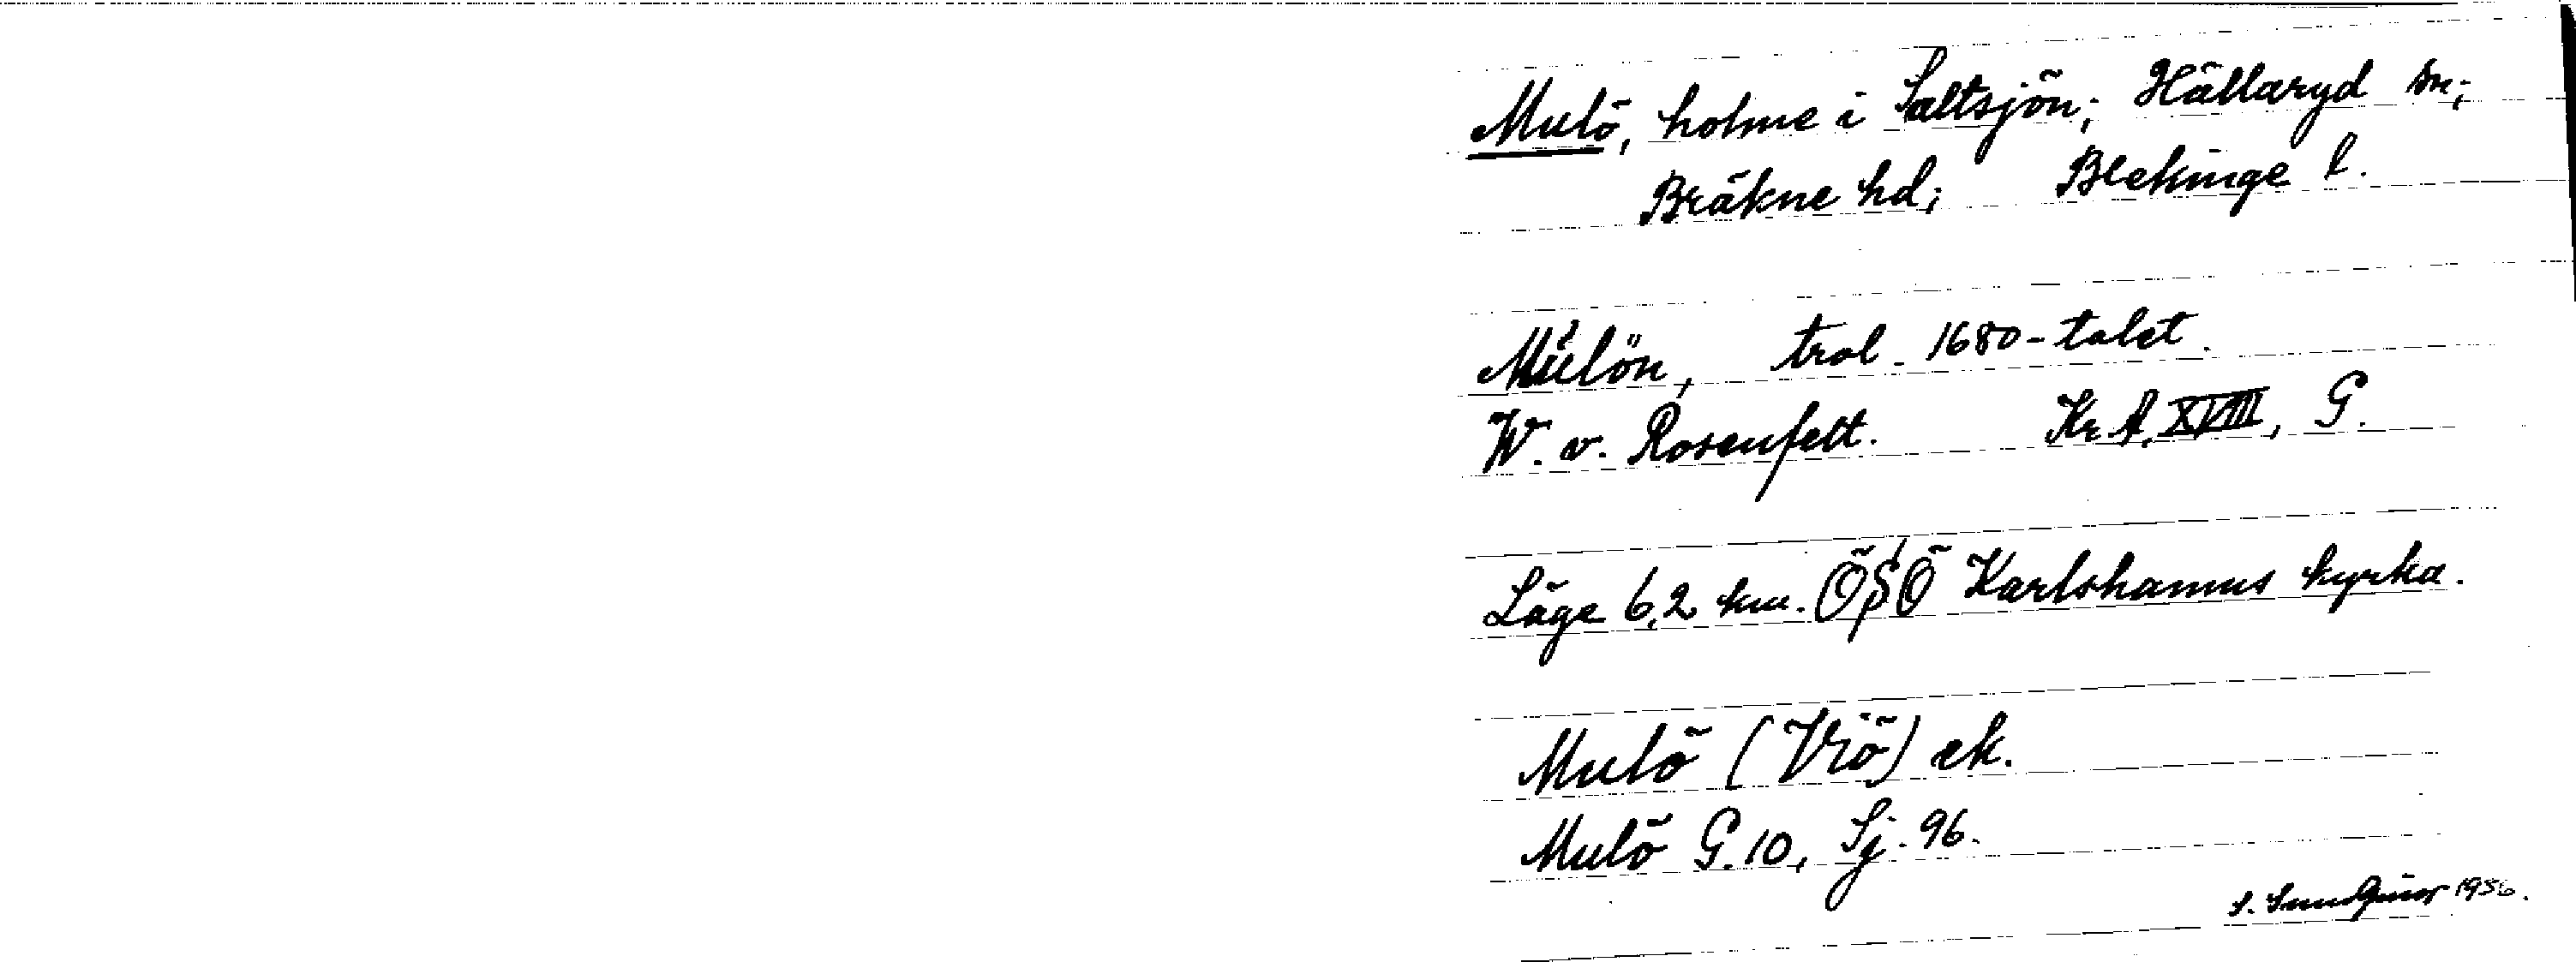 Mulö, holme i Saltsjön; Hällaryd sn;
Bräkne hd; Blekinge l.
Mülön, trol. 1680-talet.
W. v. Rosenfelt. Kr A, XVIII, G.
Läge 6,2 km. ÖSÖ Karlshamns kyrka.
Mulö (Viö) ek.
Mulö G. 10, Sj. 96.
1956.